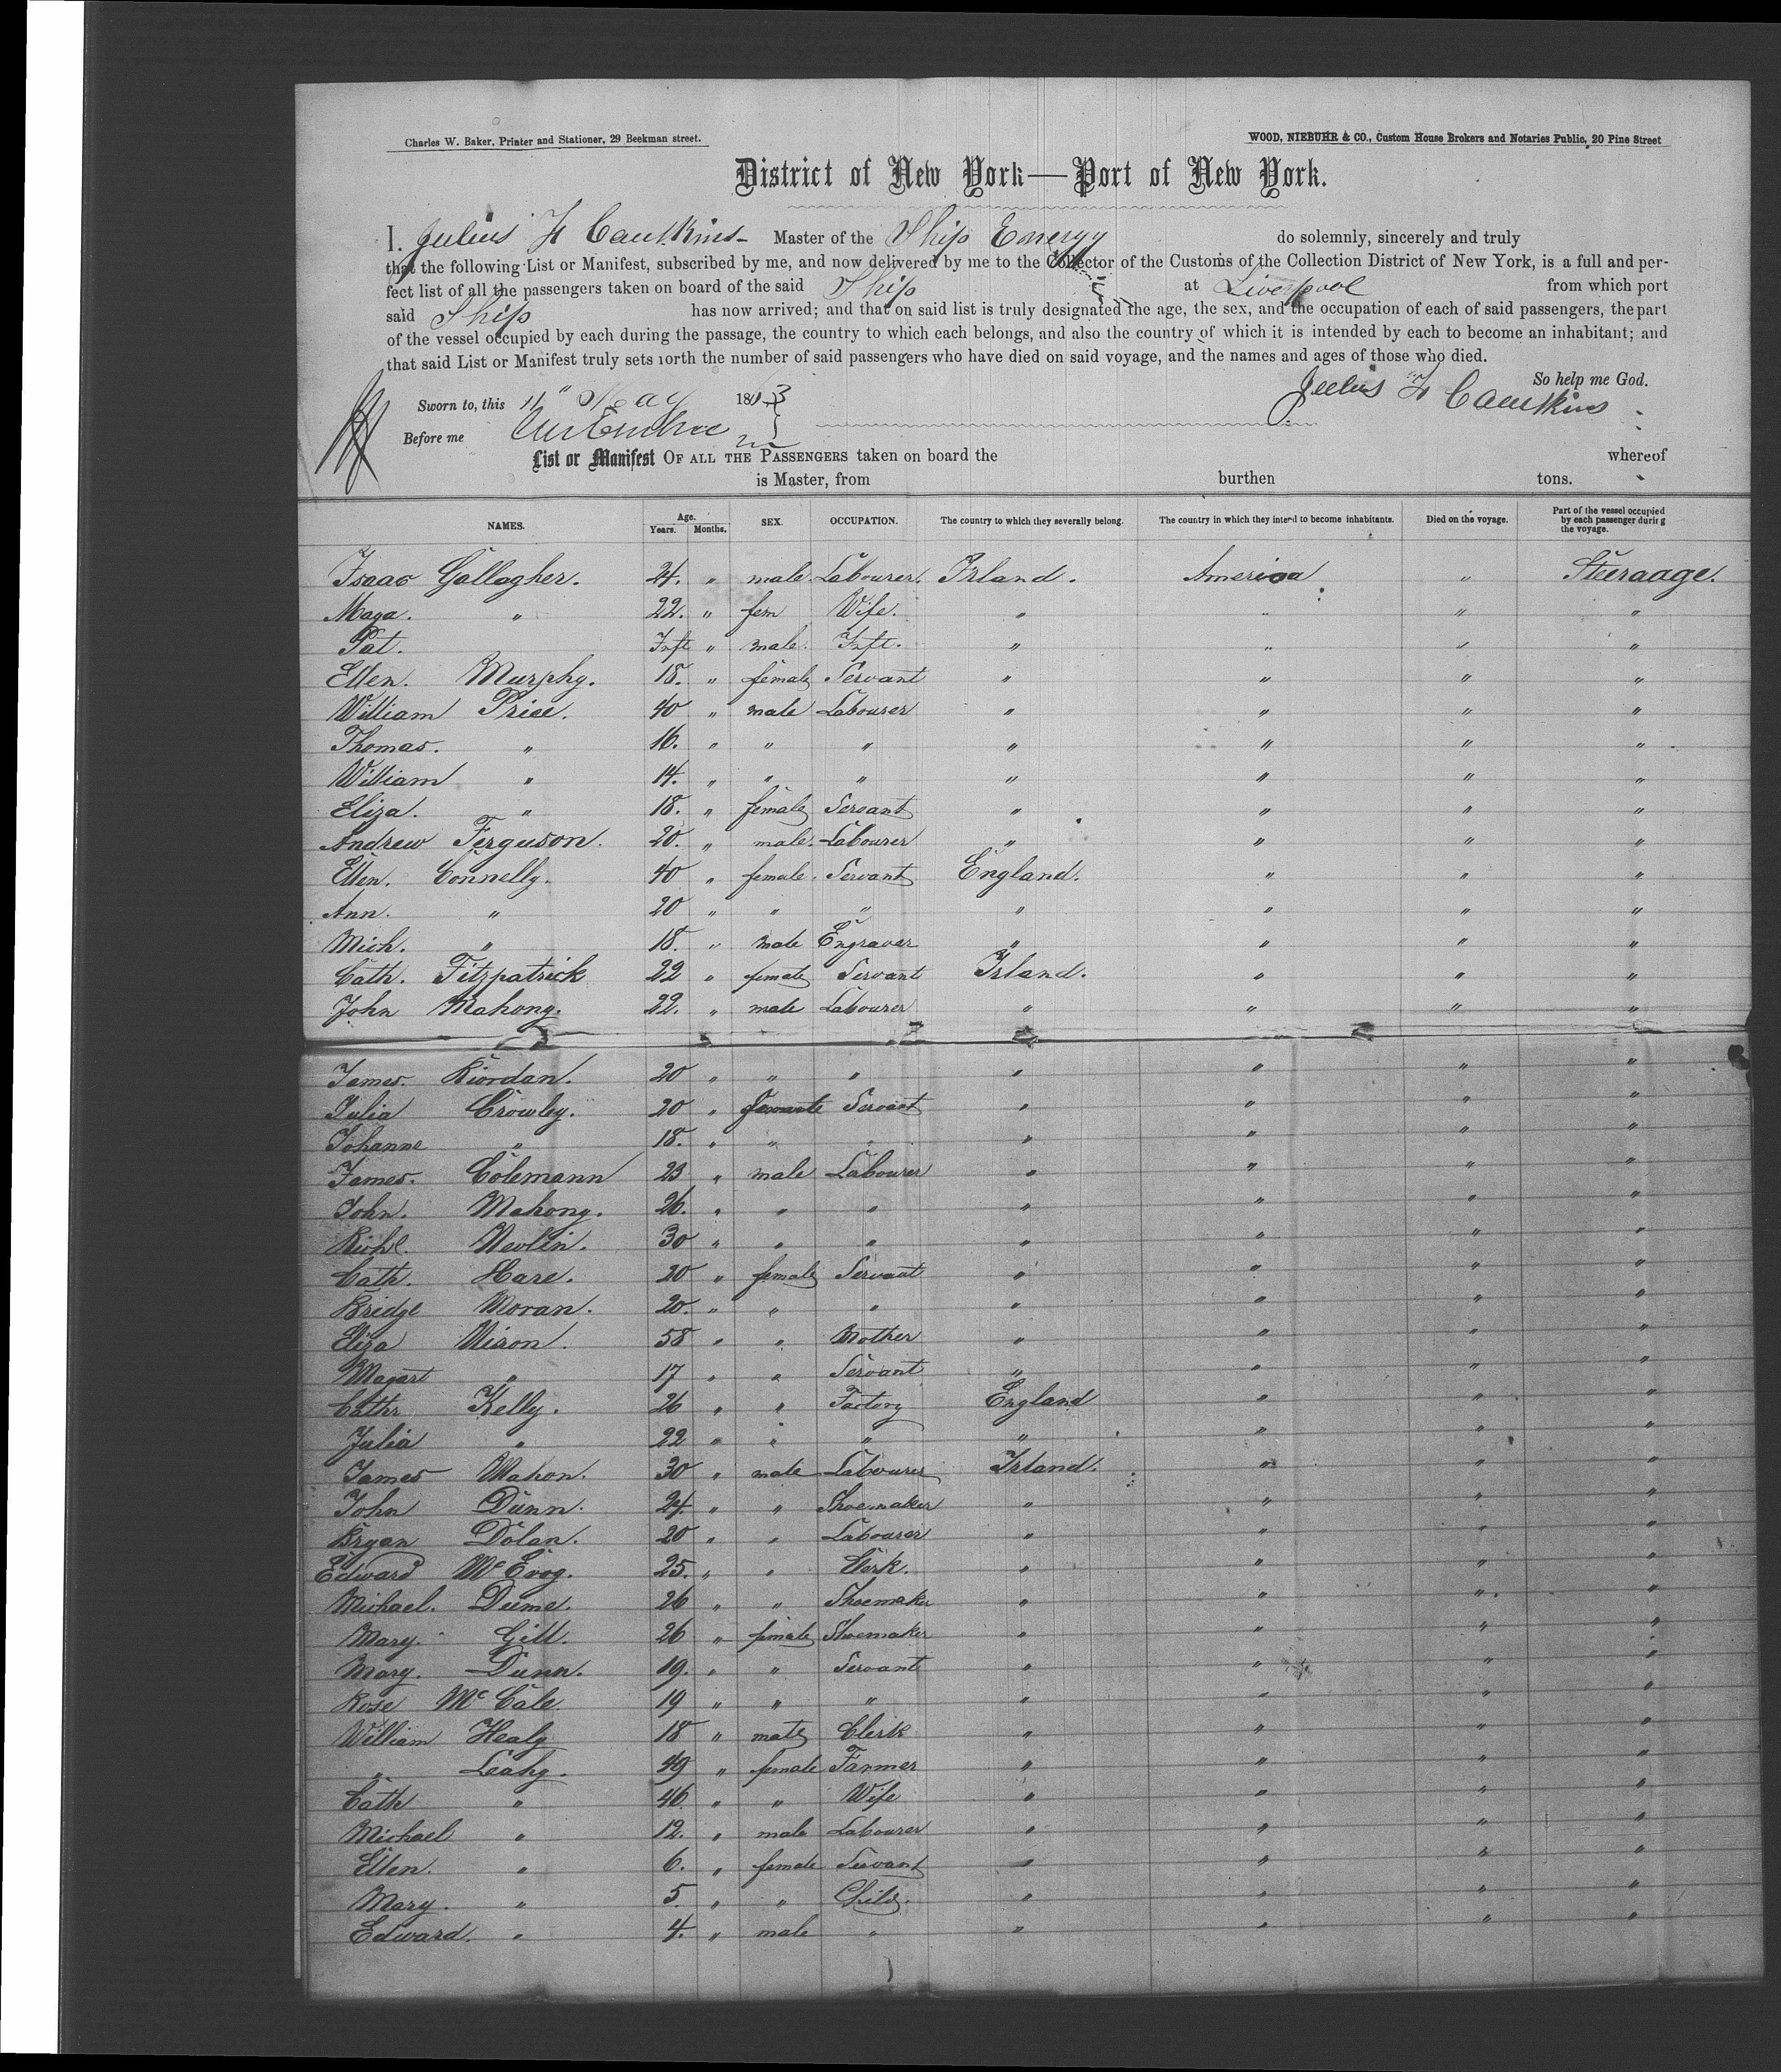 Charles W. Baker, Printer and Stationer, 29 Beekman street.
WOOD, NIEBUHR & CO., Custom House Brokers and Notaries Public, 20 Pine Street
District of New York—Port of New York.
I. Julius H Caulkins Master of the Ship Energy do solemnly, sincerely and truly
that the following List or Manifest, subscribed by me, and now delivered by me to the Collector of the Customs of the Collection District of New York, is a full and per-
fect list of all the passengers taken on board of the said Ship at Liverpool from which port
said Ship has now arrived; and that on said list is truly designated the age, the sex, and the occupation of each of said passengers, the part
of the vessel occupied by each during the passage, the country to which each belongs, and also the country of which it is intended by each to become an inhabitant; and
that said List or Manifest truly sets forth the number of said passengers who have died on said voyage, and the names and ages of those who died.
So help me God.
Sworn to, this 11" May 1863 Julius H Caulkins
Before me
List or Manifest OF ALL THE PASSENGERS taken on board the whereof
is Master, from burthen tons.
NAMES. Age. Years. Months. SEX. OCCUPATION. The country to which they severally belong. The country in which they intend to become inhabitants. Died on the voyage. Part of the vessel occupied by each passenger during the voyage.
Isaac Gallagher. 24. " male Labourer. Irland. America " Steeraage.
Maga. " 22. " fem Wife. " " " "
Pat. Inft " male. Inft. " " " "
Ellen. Murphy. 18. " female Servant " " " "
William Price. 40 " male Labourer " " " "
Thomas. " 16. " " " " " " "
William " 14. " " " " " " "
Eliza. " 18. " female Servant " " " "
Andrew Ferguson. 20. " male. Labourer " " " "
Ellen. Connelly. 40 " female. Servant England. " " "
Ann. " 20 " " " " " " "
Mich. " 18. " male Engraver " " " "
Cath. Fitzpatrick 22 " female Servant Irland. " " "
John Mahony. 22. " male Labourer " " " "
James. Riordan. 20 " " " " " " "
Julia Crowley. 20 " female Servant " " " "
Johanne " 18. " " " " " " "
James. Colemann 23 " male Labourer " " " "
John. Mahony. 26. " " " " " " "
Richd. Nevlin. 30 " " " " " " "
Cath. Hare. 20 " female Servant " " " "
Bridge Moran. 20. " " " " " " "
Eliza Nixon. 58 " " Mother " " " "
Magart " 17 " " Servant " " " "
Cathr Kelly. 26 " " Factory England " " "
Julia " 22 " " " " " " "
James Mahon. 30 " male Labourer Irland. " " "
John Dunn. 24. " " Shoemaker " " " "
Bryan Dolan. 20 " " Labourer " " " "
Edward McEvoy. 25. " " Clerk. " " " "
Michael. Dunne. 26 " " Shoemaker " " " "
Mary. Gill. 26 " female Shoemaker " " " "
Mary. Dunn. 19. " " Servant " " " "
Rose McCale. 19 " " " " " " "
William Healy 18 " male Clerk " " " "
" Leahy. 49 " female Farmer " " " "
Cath " 46 " " Wife " " " "
Michael " 12. " male Labourer " " " "
Ellen. " 6. " female Servant " " " "
Mary. " 5 " " Child. " " " "
Edward. " 4. " male " " " " "